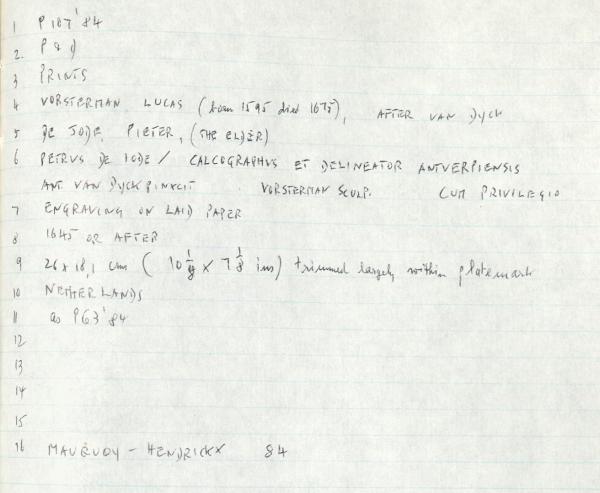 1 P167'84
2. P & D
3 PRINTS
4 VORSTERMAN LUCAS (born 1595 died 1675), AFTER VAN DYCK
5 DE JODE, PIETER, (THE ELDER)
6 PETRVS DE IODE / CALCOGRAPHVS ET DELINEATOR ANTVERPIENSIS
ANT. VAN DYCK PINXCIT VORSTERMAN SCULP. CUM PRIVILEGIO
7 ENGRAVING ON LAID PAPER
8 1645 OR AFTER
9 26 x 18,1 cm ( 10 1/4 x 7 1/8 ins) trimmed largely within platemark
10 NETHERLANDS
11 as P63'84
12
13
14
15
16 MAUQUOY - HENDRICKX 84